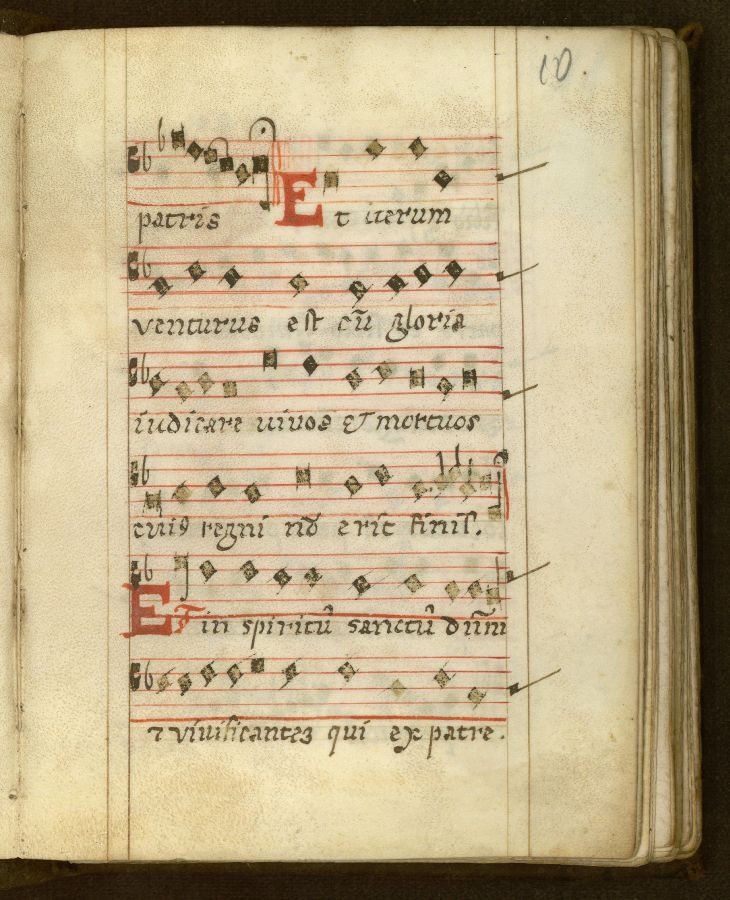 10.
patris Et iterum
venturus est cũ gloria
iudicare uiuos et mortuos
cuiꝰ regni nõ erit finis.
Et in spiritũ sanctũ dñm
⁊ viuificanteꝫ qui ex patre.